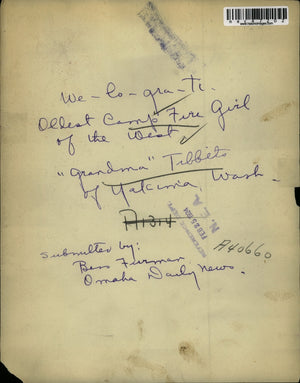 We-lo-gra-ti.
Oldest Camp Fire Girl
of the West
"Grandma" Tibbits
of Yakima, Wash.
A1314
N.E.A.
REFERENCE DEPT.
A40660
Submitted by:
Bess Furman
Omaha Daily News.